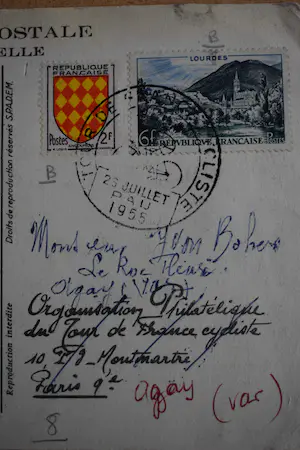 POSTALE
ELLE
Droits de reproduction réservés S.P.A.D.E.M.
Reproduction interdite
B
REPUBLIQUE
FRANÇAISE
Postes 2F
LOURDES
6F REPUBLIQUE FRANÇAISE
TOUR DE CYCLISTE
25 JUILLET
PAU
1955
B
Monsieur Yvon
Le Roc Fleuri
Agay (Var)
Organisation Philatélique
du Tour de France cycliste
10 Fg Montmartre
Paris 9e
agay (var)
8